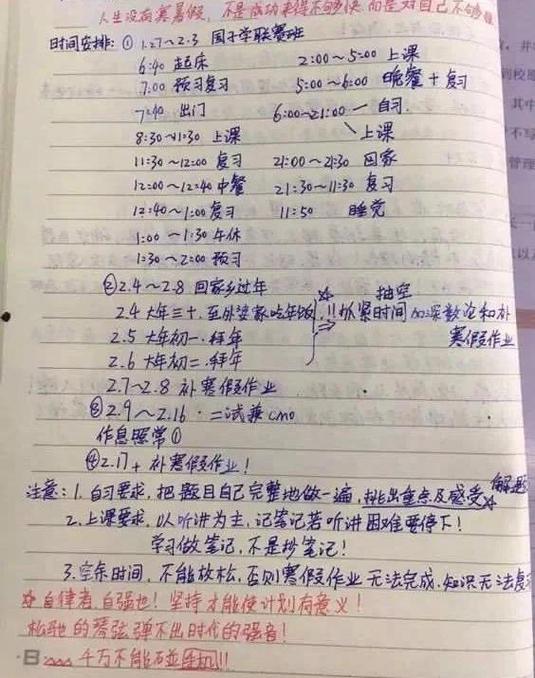 人生没有寒暑假，不是成功来得不够快而是对自己不够狠
时间安排：① 1.27~2.3 国子学联赛班
6:40 起床 2:00~5:00 上课
7:00 预习复习 5:00~6:00 晚餐+复习
7:40 出门 6:00~21:00 自习
8:30~11:30 上课 上课
11:30~12:00 复习 21:00~21:30 回家
12:00~12:40 中餐 21:30~11:30 复习
12:40~1:00 复习 11:50 睡觉
1:00~1:30 午休
1:30~2:00 预习
②2.4~2.8 回家乡过年
2.4 大年三十.至外婆家吃年饭 !!抓紧时间 抽空 加深数论和补
2.5 大年初一.拜年 寒假作业
2.6 大年初二.拜年
2.7~2.8 补寒假作业
③2.9~2.16·二试兼CMO
作息照常①
④2.17+ 补寒假作业！
注意：1.自习要求，把题目自己完整地做一遍，挑出重点及解题感受☆
2.上课要求，以听讲为主，记笔记若听讲困难要停下！
学习做笔记，不是抄笔记！
3.空余时间，不能放松，否则寒假作业无法完成，知识无法复
☆自律者，自强也！坚持才能使计划有意义！
松弛的琴弦弹不出时代的强音！
千万不能碰手机!!
并
到校
其中
不写
管理